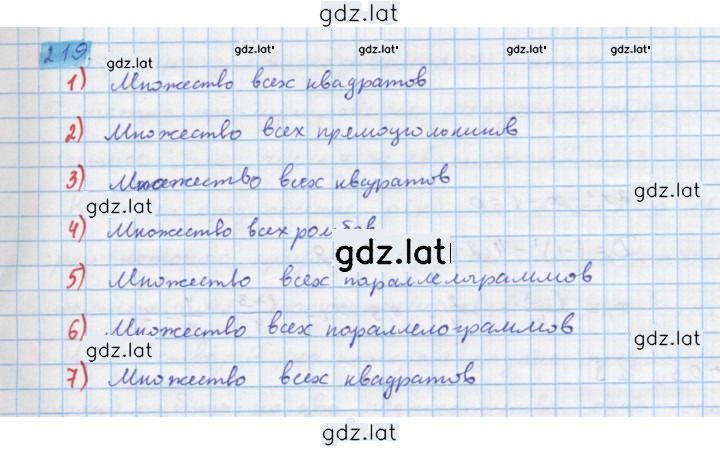 gdz.lat
219.
gdz.lat gdz.lat gdz.lat
1) Множество всех квадратов
2) Множество всех прямоугольников
3) Множество всех квадратов
gdz.lat gdz.lat
4) Множество всех ромбов
gdz.lat
5) Множество всех параллелограммов
6) Множество всех параллелограммов
gdz.lat gdz.lat
7) Множество всех квадратов
gdz.lat